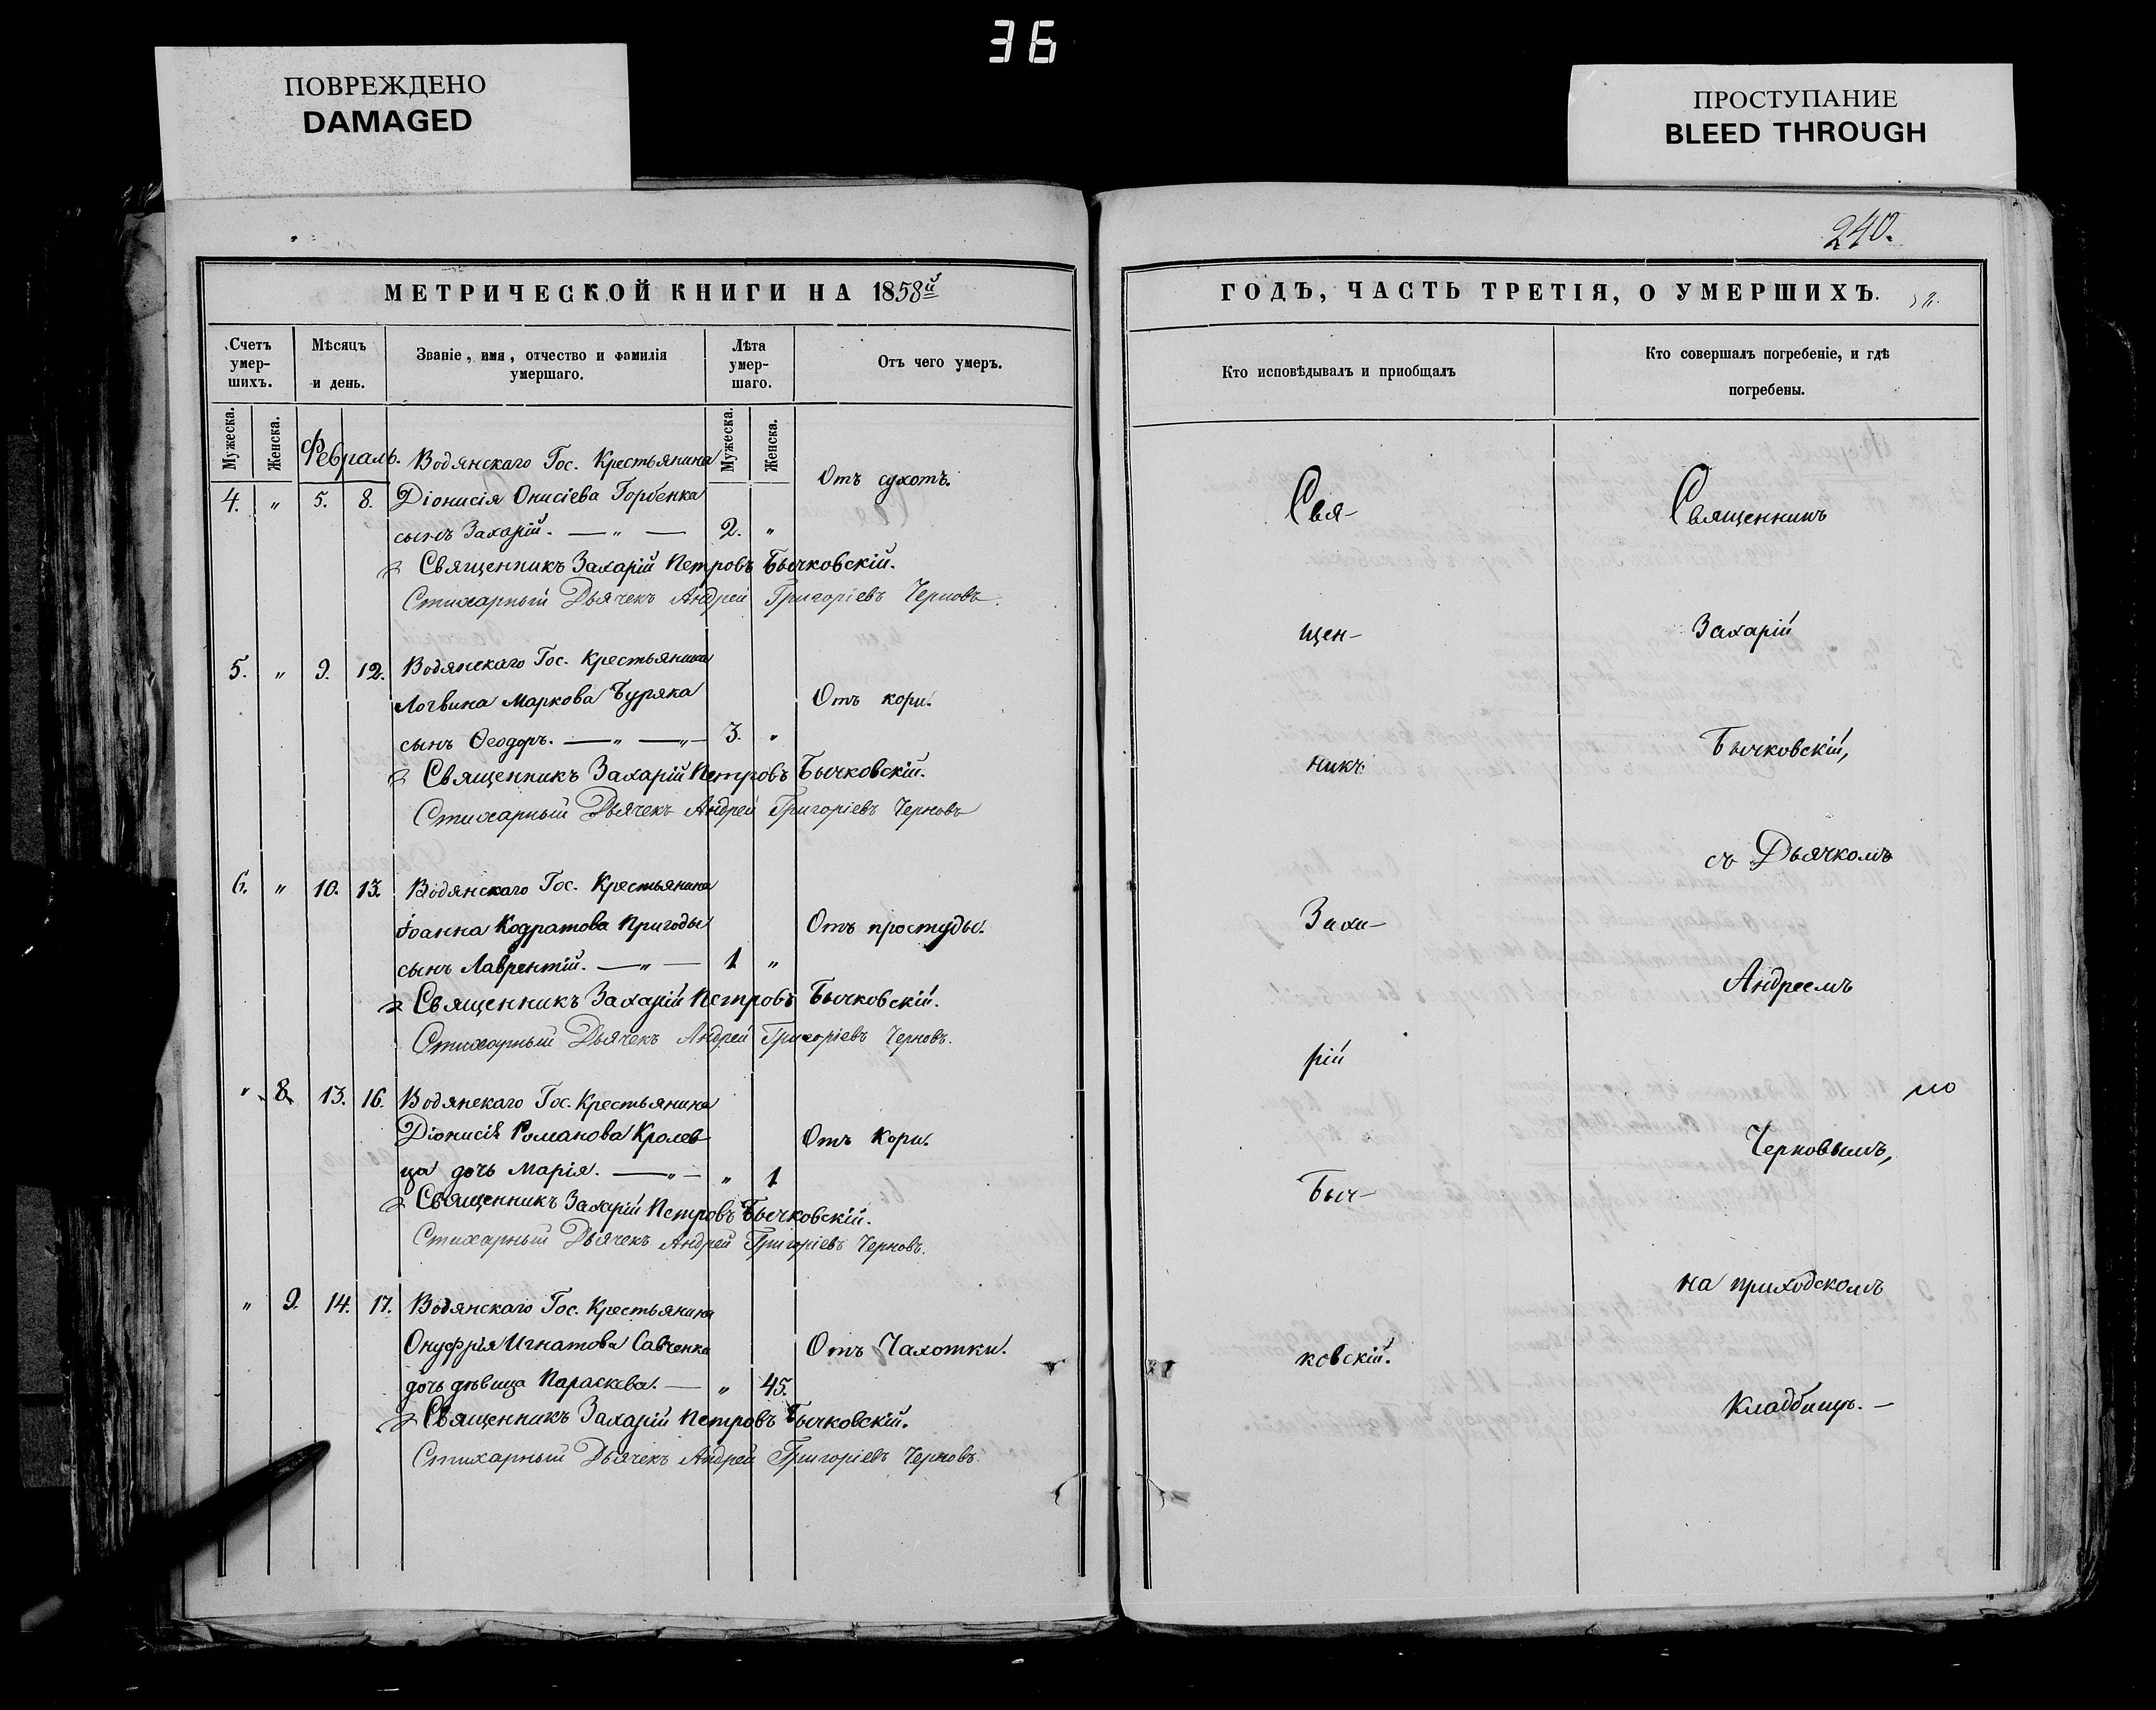 36
ПОВРЕЖДЕНО
DAMAGED
ПРОСТУПАНИЕ
BLEED THROUGH
240.
МЕТРИЧЕСКОЙ КНИГИ НА 1858й
Счетъ умер- шихъ.
Мѣсяцъ и день.
Званіе, имя, отчество и фамилія умершаго.
Лѣта умер- шаго.
Отъ чего умеръ.
Мужеска.
Женска.
Мужеска.
Женска.
Февраль. Водянскаго Гос. Крестьянина
4. " 5. 8. Діонисія Онисіева Горбенка Отъ сухотъ.
сынъ Захарій. — " — 2. "
Священникъ Захарій Петровъ Бычковскій.
Стихарный Дьячекъ Андрей Григоріевъ Черновъ.
5. " 9. 12. Водянскаго Гос. Крестьянина
Логвина Маркова Буряка Отъ кори.
сынъ Ѳеодоръ. — " — " — 3. "
Священникъ Захарій Петровъ Бычковскій.
Стихарный Дьячекъ Андрей Григоріевъ Черновъ
6. " 10. 13. Водянскаго Гос. Крестьянина
Іоанна Кодратова Пригоды Отъ простуды.
сынъ Лаврентій. — " — 1 "
Священникъ Захарій Петровъ Бычковскій.
Стихарный Дьячекъ Андрей Григоріевъ Черновъ.
" 8. 13. 16. Водянскаго Гос. Крестьянина
Діонисія Романова Кролев- Отъ кори.
ца дочь Марія. — " — " 1
Священникъ Захарій Петровъ Бычковскій.
Стихарный Дьячекъ Андрей Григоріевъ Черновъ.
" 9. 14. 17. Водянскаго Гос. Крестьянина
Онуфрія Игнатова Савченка Отъ Чахотки.
дочь дѣвица Параскева. — " 45.
Священникъ Захарій Петровъ Бычковскій.
Стихарный Дьячекъ Андрей Григоріевъ Черновъ.
ГОДЪ, ЧАСТЬ ТРЕТІЯ, О УМЕРШИХЪ.
Кто исповѣдывалъ и приобщалъ
Кто совершалъ погребеніе, и гдѣ погребены.
Свя-
щен-
никъ
Заха-
рій
Быч-
ковскій.
Священникъ
Захарій
Бычковскій,
съ Дьячкомъ
Андреемъ
по
Черновымъ,
на приходскомъ
кладбищѣ. —